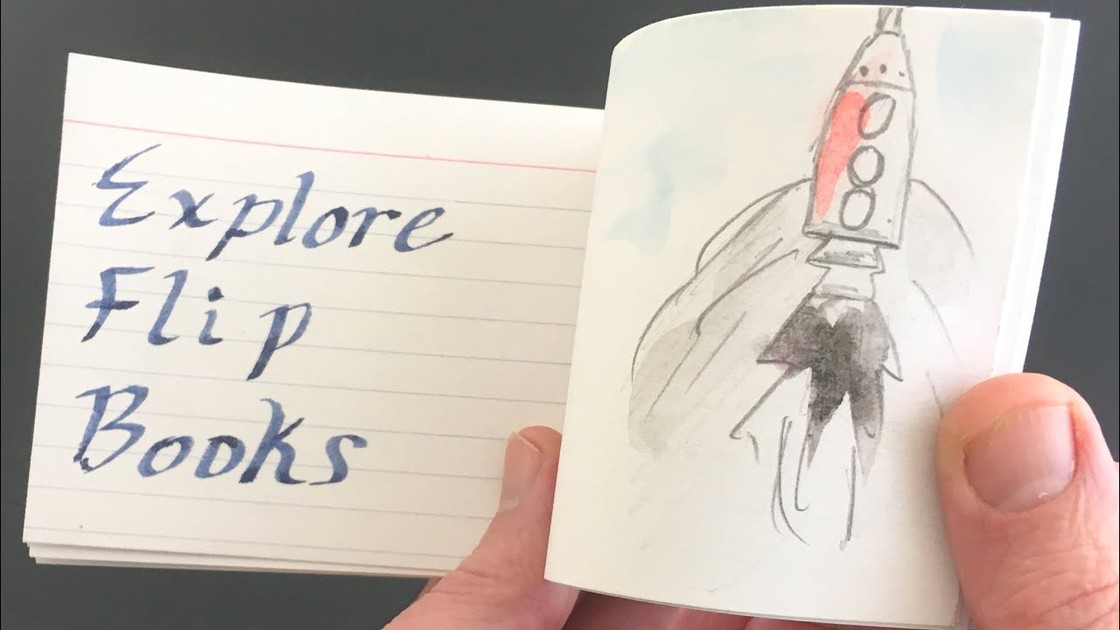 Explore
Flip
Books